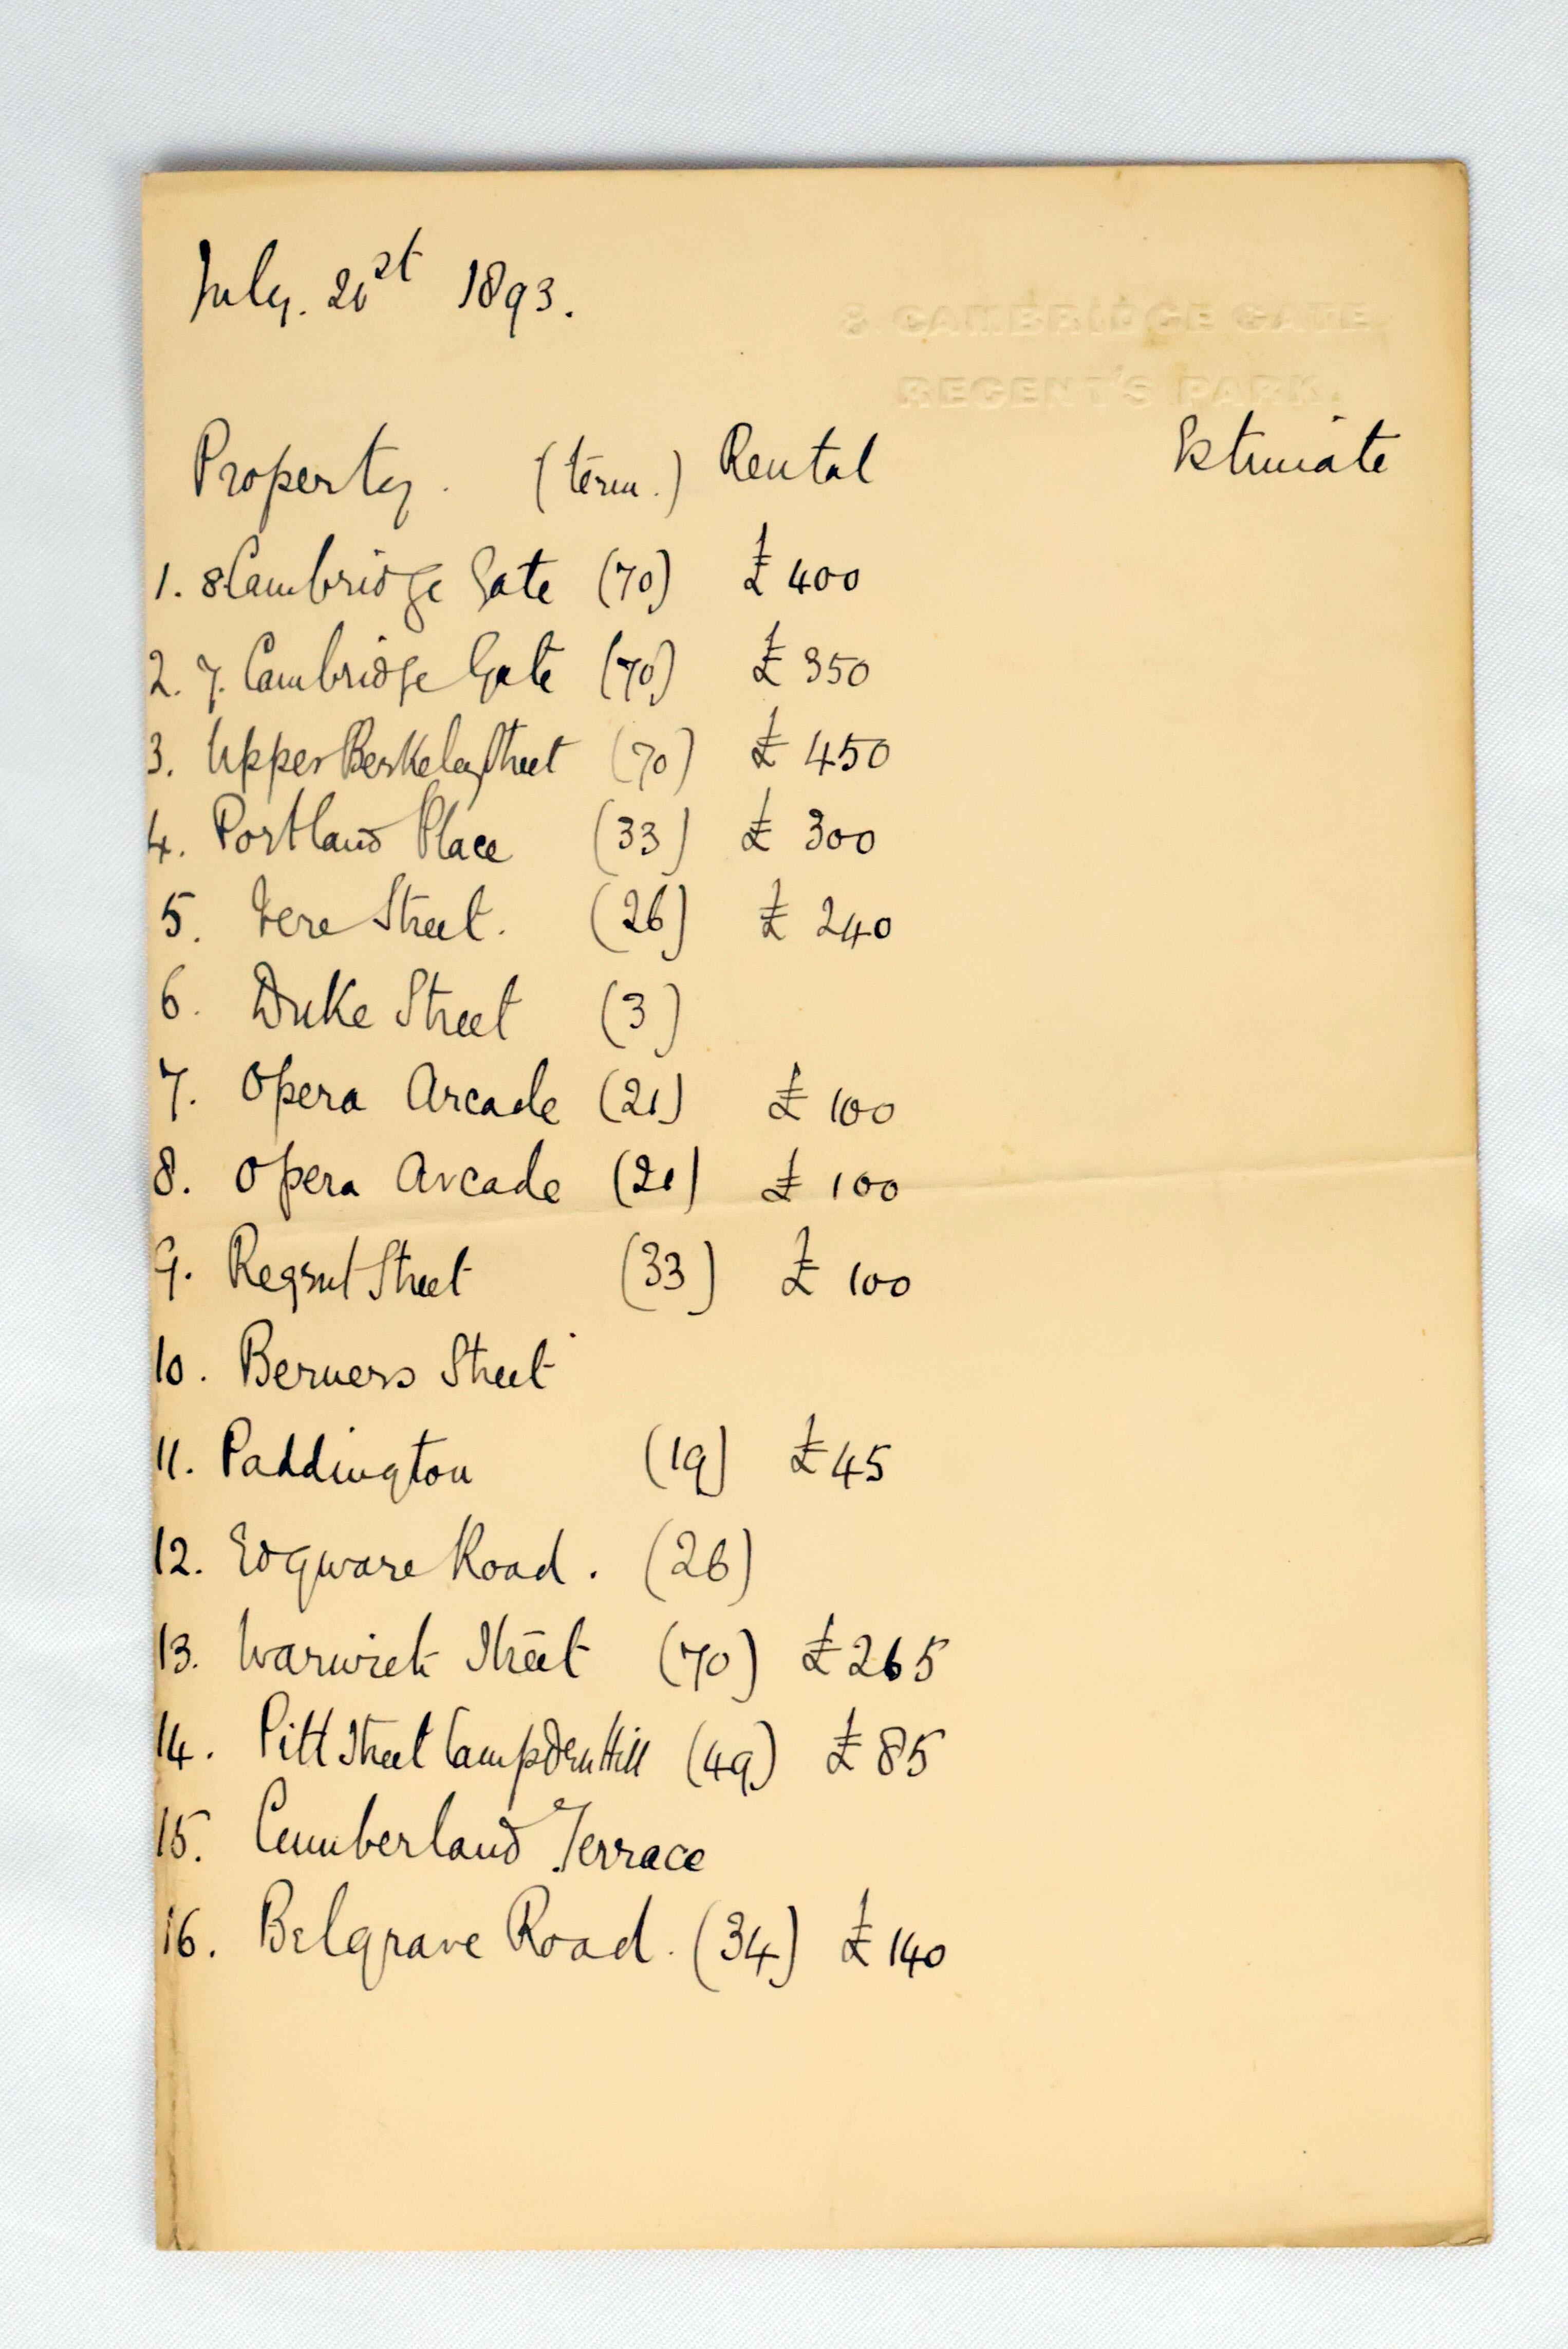 July. 21st 1893.
8 CAMBRIDGE GATE
REGENT'S PARK.
Property. (term.) Rental Estimate
1. 8 Cambridge Gate (70) £ 400
2. 7. Cambridge Gate (70) £ 350
3. Upper Berkeley Street (70) £ 450
4. Portland Place (33) £ 300
5. Vere Street. (26) £ 240
6. Duke Street (3)
7. Opera Arcade (21) £ 100
8. Opera Arcade (21) £ 100
9. Regent Street (33) £ 100
10. Berners Street
11. Paddington (19) £45
12. Edgware Road. (26)
13. Warwick Street (70) £265
14. Pitt Street Campden Hill (49) £85
15. Cumberland Terrace
16. Belgrave Road. (34) £140